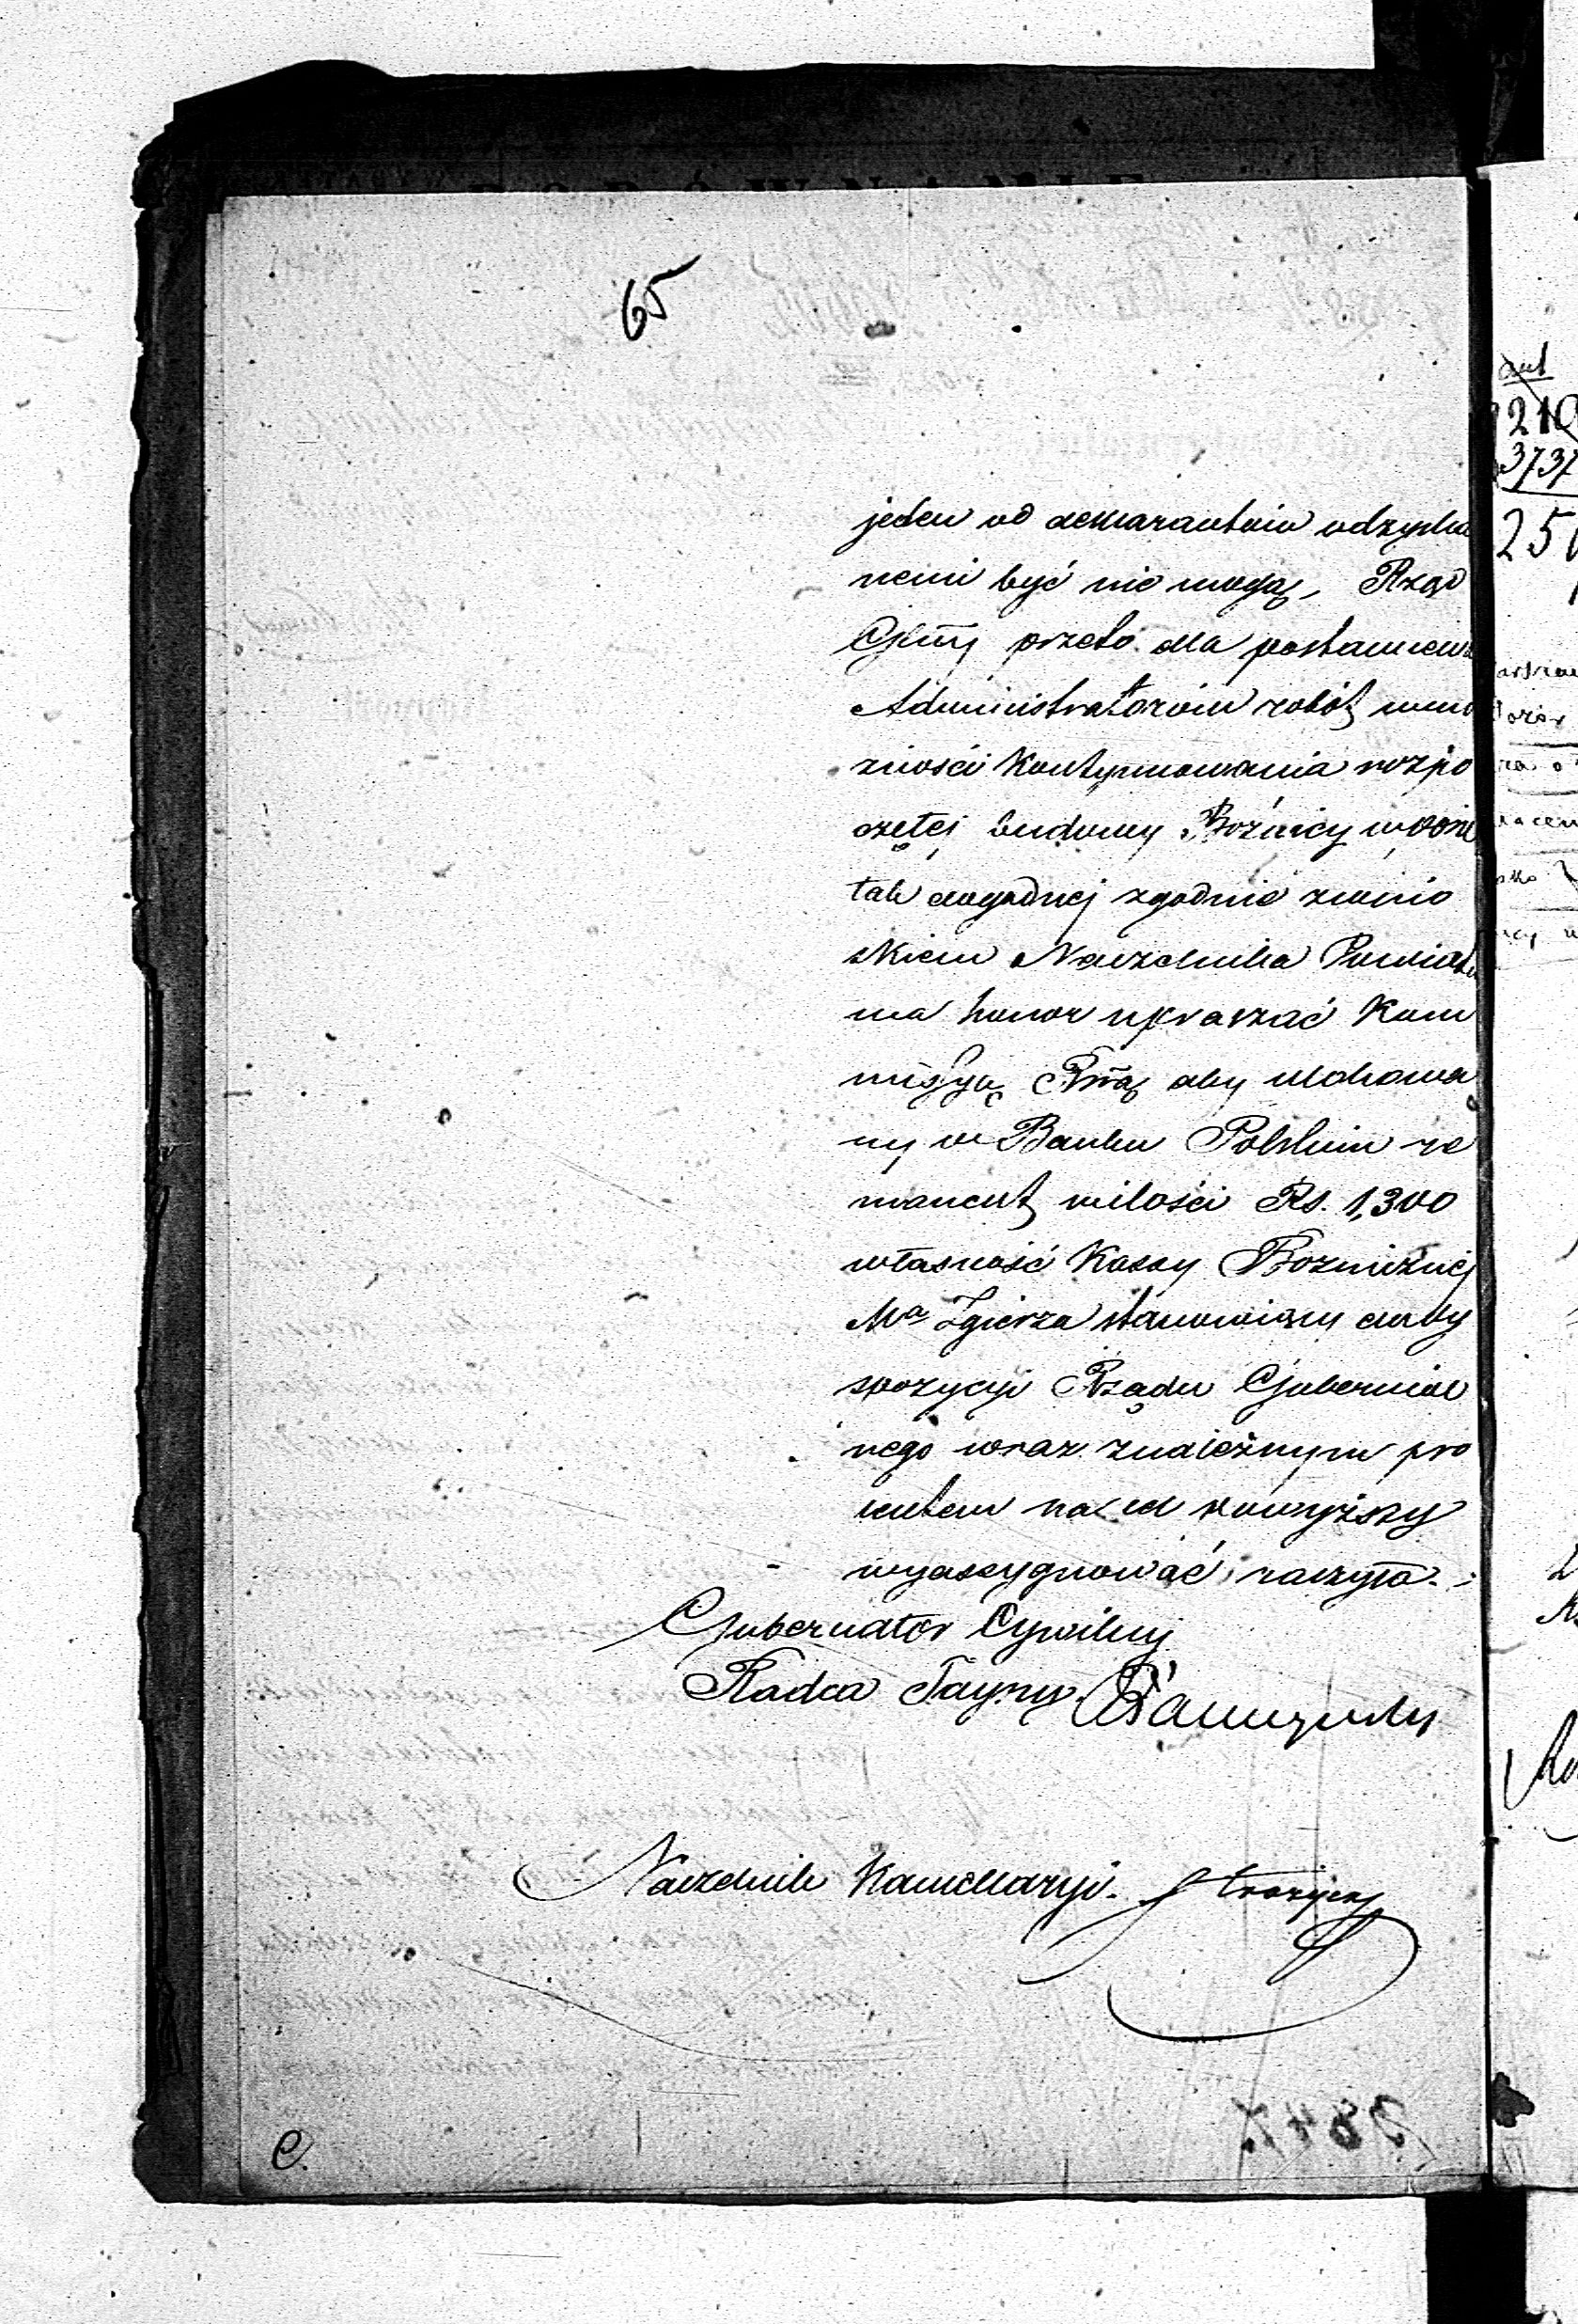 65
jeden od deklarantów odzyska
nemi być nie mogą, Rząd
Glny przeto dla postawienia
Administratorów robót w mo
żności kontynuowania rozpo
czętej budowy Bożnicy w porze
tak dogodnej zgodnie z wnio
skiem Naczelnika Powiatu
ma honor upraszać Kom
missyą Rwą aby ulokowa
ny w Banku Polskim re
manent w ilości Rs. 1,300
własność Kassy Bożnicznej
Ma Zgierza stanowiący do dy
spozycyi Rządu Gubernial
nego wraz z należnym pro
centem na cel powyższy
wyassygnować raczyła.
Gubernator Cywilny
Radca Tayny
Naczelnik Kancellaryi.